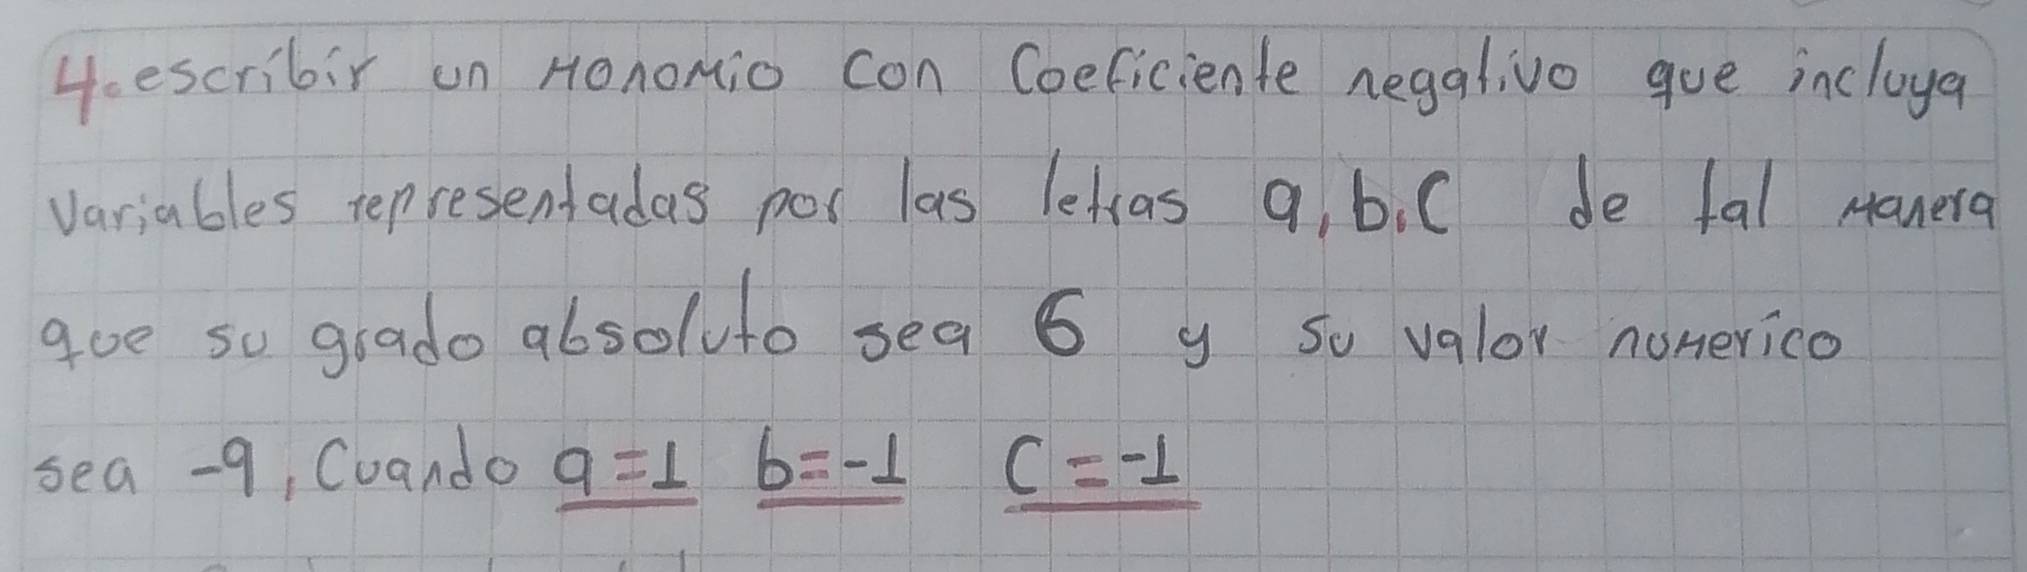 4. escribir un Monomio con Coeficiente negativo que incluya
Variables representadas por las letras a, b, C de tal Manera
que su grado absoluto sea 6 y su valor numerico
sea -9, Cuando a=1 b=-1 C=-1